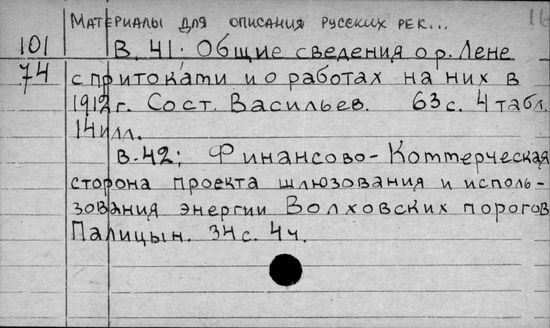 Материалы для описания русских рек...
101 В. 41: Общие сведения о р. Лене
74 с притоками и о работах на них в
1912 г. Сост. Васильев. 63 с. 4 табл.
14 илл.
В. 42; Финансово-Коммерческая
сторона проекта шлюзования и исполь-
зования энергии Волховских порогов
Палицын. 34 с. 4 ч.